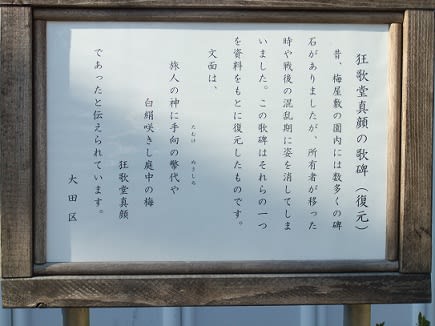 狂歌堂真顔の歌碑（復元）
昔、梅屋敷の園内には数多くの碑
石がありましたが、所有者が移った
時や戦後の混乱期に姿を消してしま
いました。この歌碑はそれらの一つ
を資料をもとに復元したものです。
文面は、
旅人の神に手向の幣代や
たむけ ぬさしろ
白絹咲きし庭中の梅
狂歌堂真顔
であったと伝えられています。
大田区